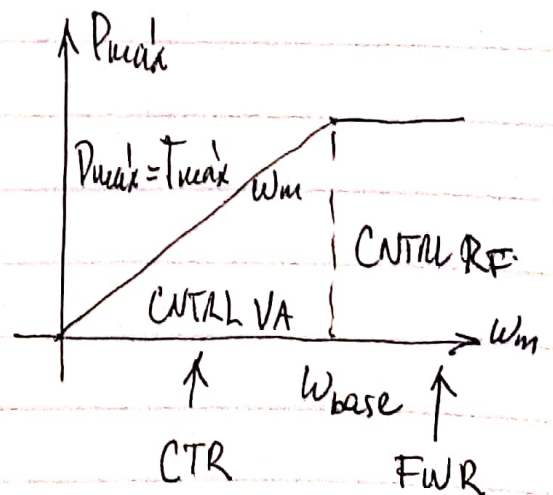 Pmáx
Pmáx = Tmáx ωm
CNTRL RF.
CNTRL VA
ωm
ωbase
CTR
FWR